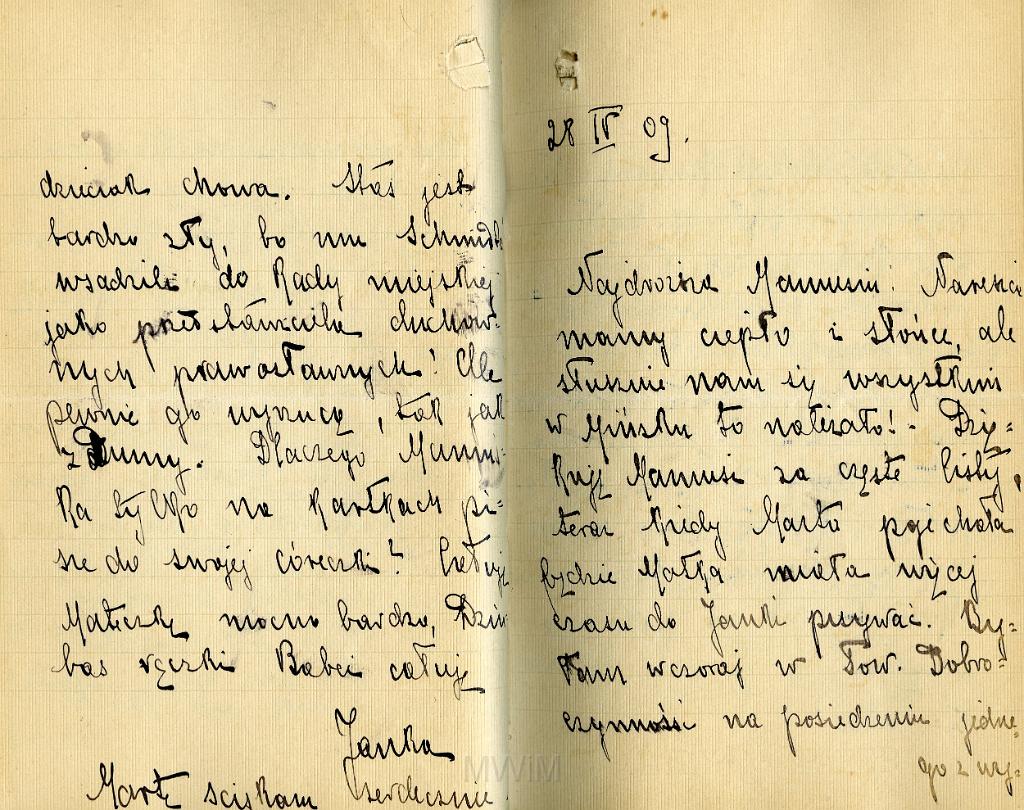 dzieciak chowa. Staś jest
bardzo zły, bo mu Schmidt
wsadzili do Rady miejskiej
jako przedstawiciela duchow-
nych prawosławnych! Ale
pewnie go wyrzucą, tak jak
z Dumy. Dlaczego Mamu-
ka tylko na kartkach pi-
sze do swojej córeczki? Całuję
Mateczkę mocno bardzo,
bas rączki Babci całuję
Janka
Martę ściskam serdecznie
28 IV 09.
Najdroższa Mamusiu! Nareszcie
mamy ciepło i słońce, ale
słusznie nam się wszystkim
w Mińsku to należało! - Dzię-
kuję Mamusi za częste listy,
teraz kiedy Marta pojechała
będzie Matka miała więcej
czasu do Janki pisywać. By-
łam wczoraj w Tow. Dobro-
czynności na posiedzeniu jedne-
go z wy-
MWIM